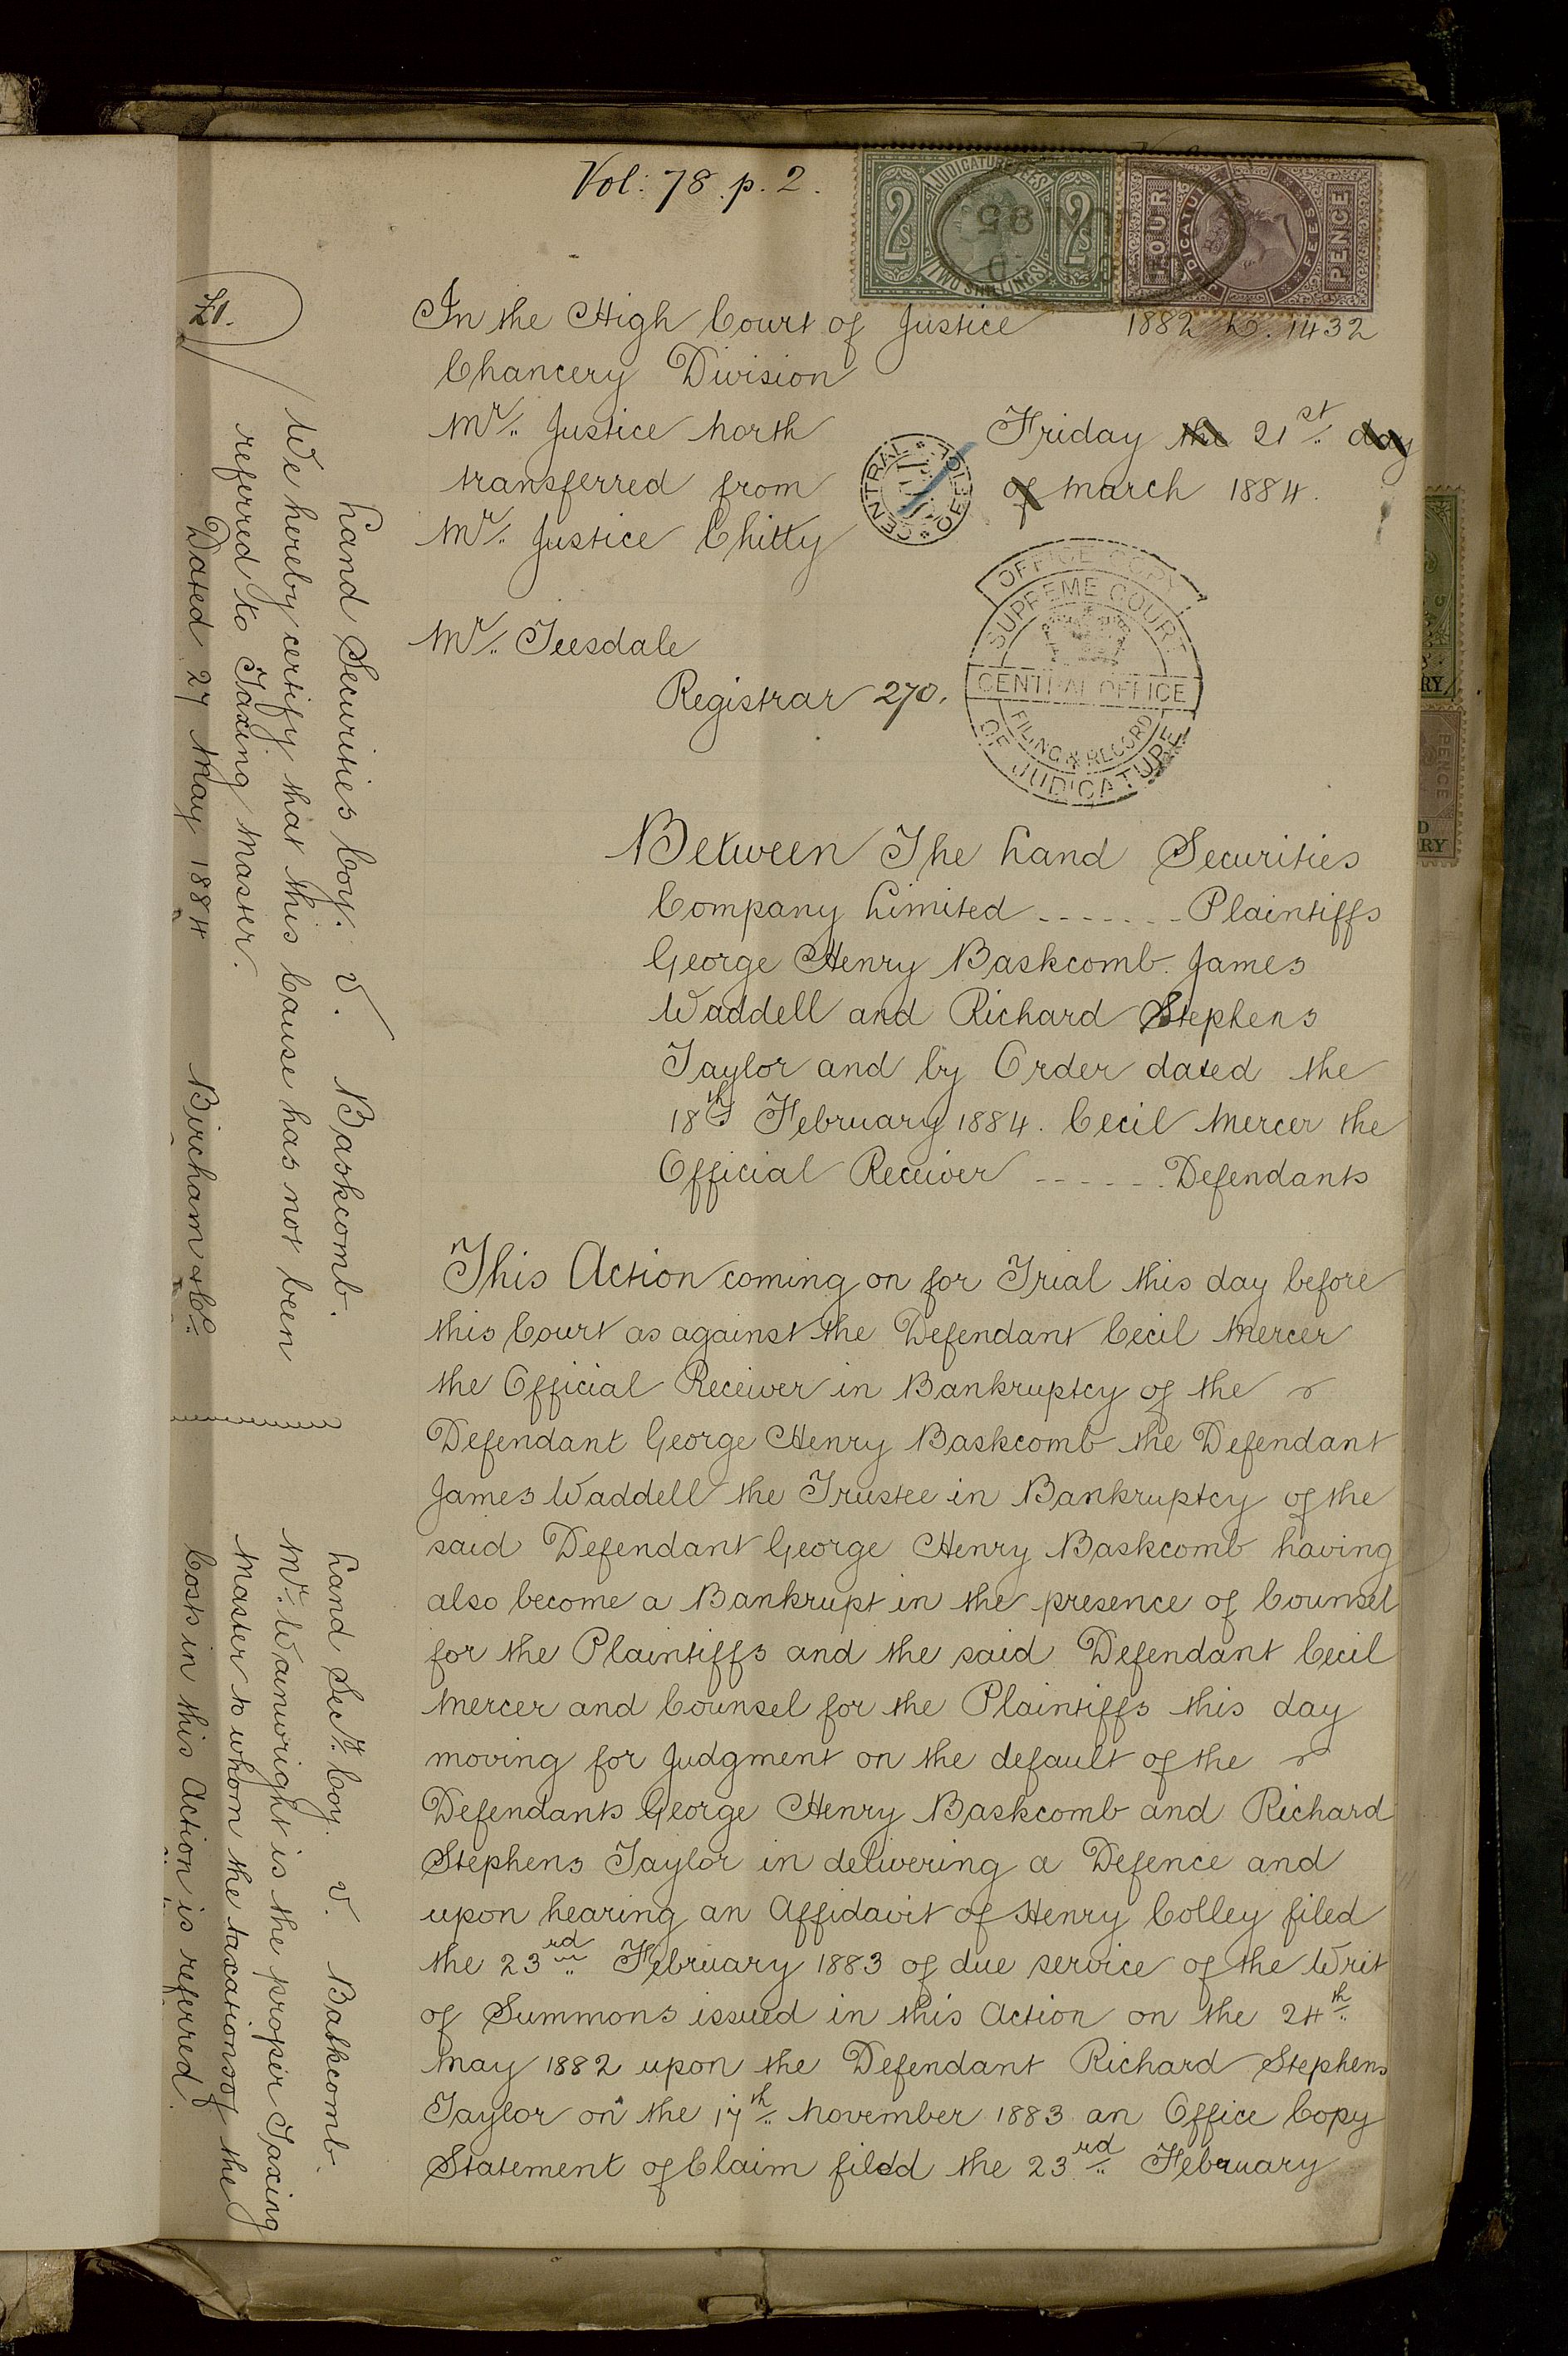 Vol: 78. p. 2.
2s JUDICATURE FEES 2s
TWO SHILLINGS
FOUR JUDICATURE FEES PENCE
In the High Court of Justice 1882 L. 1432
Chancery Division
Mr. Justice North Friday the 21st day
transferred from of March 1884.
Mr. Justice Chitty
CENTRAL OFFICE
OFFICE COPY
SUPREME COURT
CENTRAL OFFICE
FILING & RECORD
OF JUDICATURE
Mr. Teesdale
Registrar 270.
Between The Land Securities
Company Limited - - - - - - - Plaintiffs
George Henry Baskcomb. James
Waddell and Richard Stephens
Taylor and by Order dated the
18th February 1884. Cecil Mercer the
Official Receiver - - - - - - Defendants
This Action coming on for Trial this day before
this Court as against the Defendant Cecil Mercer
the Official Receiver in Bankruptcy of the
Defendant George Henry Baskcomb the Defendant
James Waddell the Trustee in Bankruptcy of the
said Defendant George Henry Baskcomb having
also become a Bankrupt in the presence of Counsel
for the Plaintiffs and the said Defendant Cecil
Mercer and Counsel for the Plaintiffs this day
moving for Judgment on the default of the
Defendants George Henry Baskcomb and Richard
Stephens Taylor in delivering a Defence and
upon hearing an Affidavit of Henry Colley filed
the 23rd February 1883 of due service of the Writ
of Summons issued in this Action on the 24th
May 1882 upon the Defendant Richard Stephens
Taylor on the 17th November 1883 an Office Copy
Statement of Claim filed the 23rd February
£1.
Land Securities Coy. v. Baskcomb.
We hereby certify that this Cause has not been
referred to Taxing Master.
Dated 27 May 1884 Bircham & Co.
Land Secs. Coy. v. Baskcomb.
Mr. Wainwright is the proper Taxing
Master to whom the taxation of the
Costs in this Action is referred.
PENCE